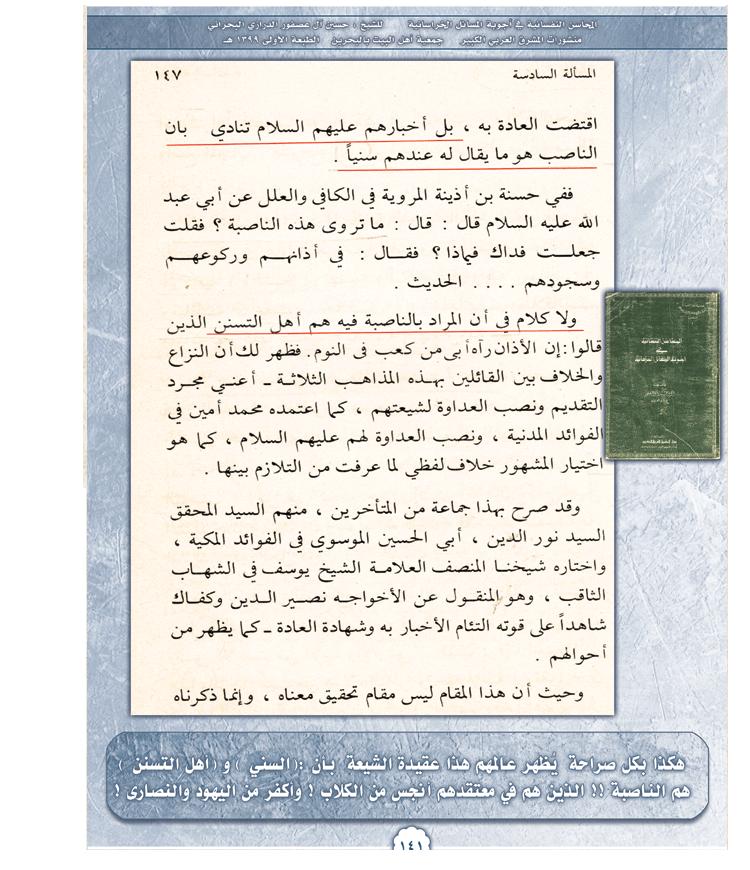 المحاسن النفسانية في أجوبة المسائل الخراسانية للشيخ : حسين آل عصفور الدرازي البحراني
منشورات المشرق العربي الكبير جمعية أهل البيت بالبحرين الطبعة الأولى ١٣٩٩ هـ
المسألة السادسة ١٤٧
اقتضت العادة به ، بل أخبارهم عليهم السلام تنادي بان
الناصب هو ما يقال له عندهم سنياً .
ففي حسنة بن أذينة المروية في الكافي والعلل عن أبي عبد
الله عليه السلام قال : قال : ما تروى هذه الناصبة ؟ فقلت
جعلت فداك فيماذا ؟ فقال : في أذانهم وركوعهم
وسجودهم .... الحديث .
ولا كلام في أن المراد بالناصبة فيه هم أهل التسنن الذين
قالوا : إن الأذان رآه أبي من كعب في النوم . فظهر لك أن النزاع
والخلاف بين القائلين بهذه المذاهب الثلاثة - أعني مجرد
التقديم ونصب العداوة لشيعتهم ، كما اعتمده محمد أمين في
الفوائد المدنية ، ونصب العداوة لهم عليهم السلام ، كما هو
اختيار المشهور خلاف لفظي لما عرفت من التلازم بينها .
وقد صرح بهذا جماعة من المتأخرين ، منهم السيد المحقق
السيد نور الدين ، أبي الحسين الموسوي في الفوائد المكية ،
واختاره شيخنا المنصف العلامة الشيخ يوسف في الشهاب
الثاقب ، وهو المنقول عن الأخواجه نصير الدين وكفاك
شاهداً على قوته التئام الأخبار به وشهادة العادة - كما يظهر من
أحوالهم .
وحيث أن هذا المقام ليس مقام تحقيق معناه ، وإنما ذكرناه
المحاسن النفسانية
في
أجوبة المسائل الخراسانية
هكذا بكل صراحة يُظهر عالمهم هذا عقيدة الشيعة بأن :( السني ) و ( أهل التسنن )
هم الناصبة !! الذين هم في معتقدهم أنجس من الكلاب ! وأكفر من اليهود والنصارى !
١٤١